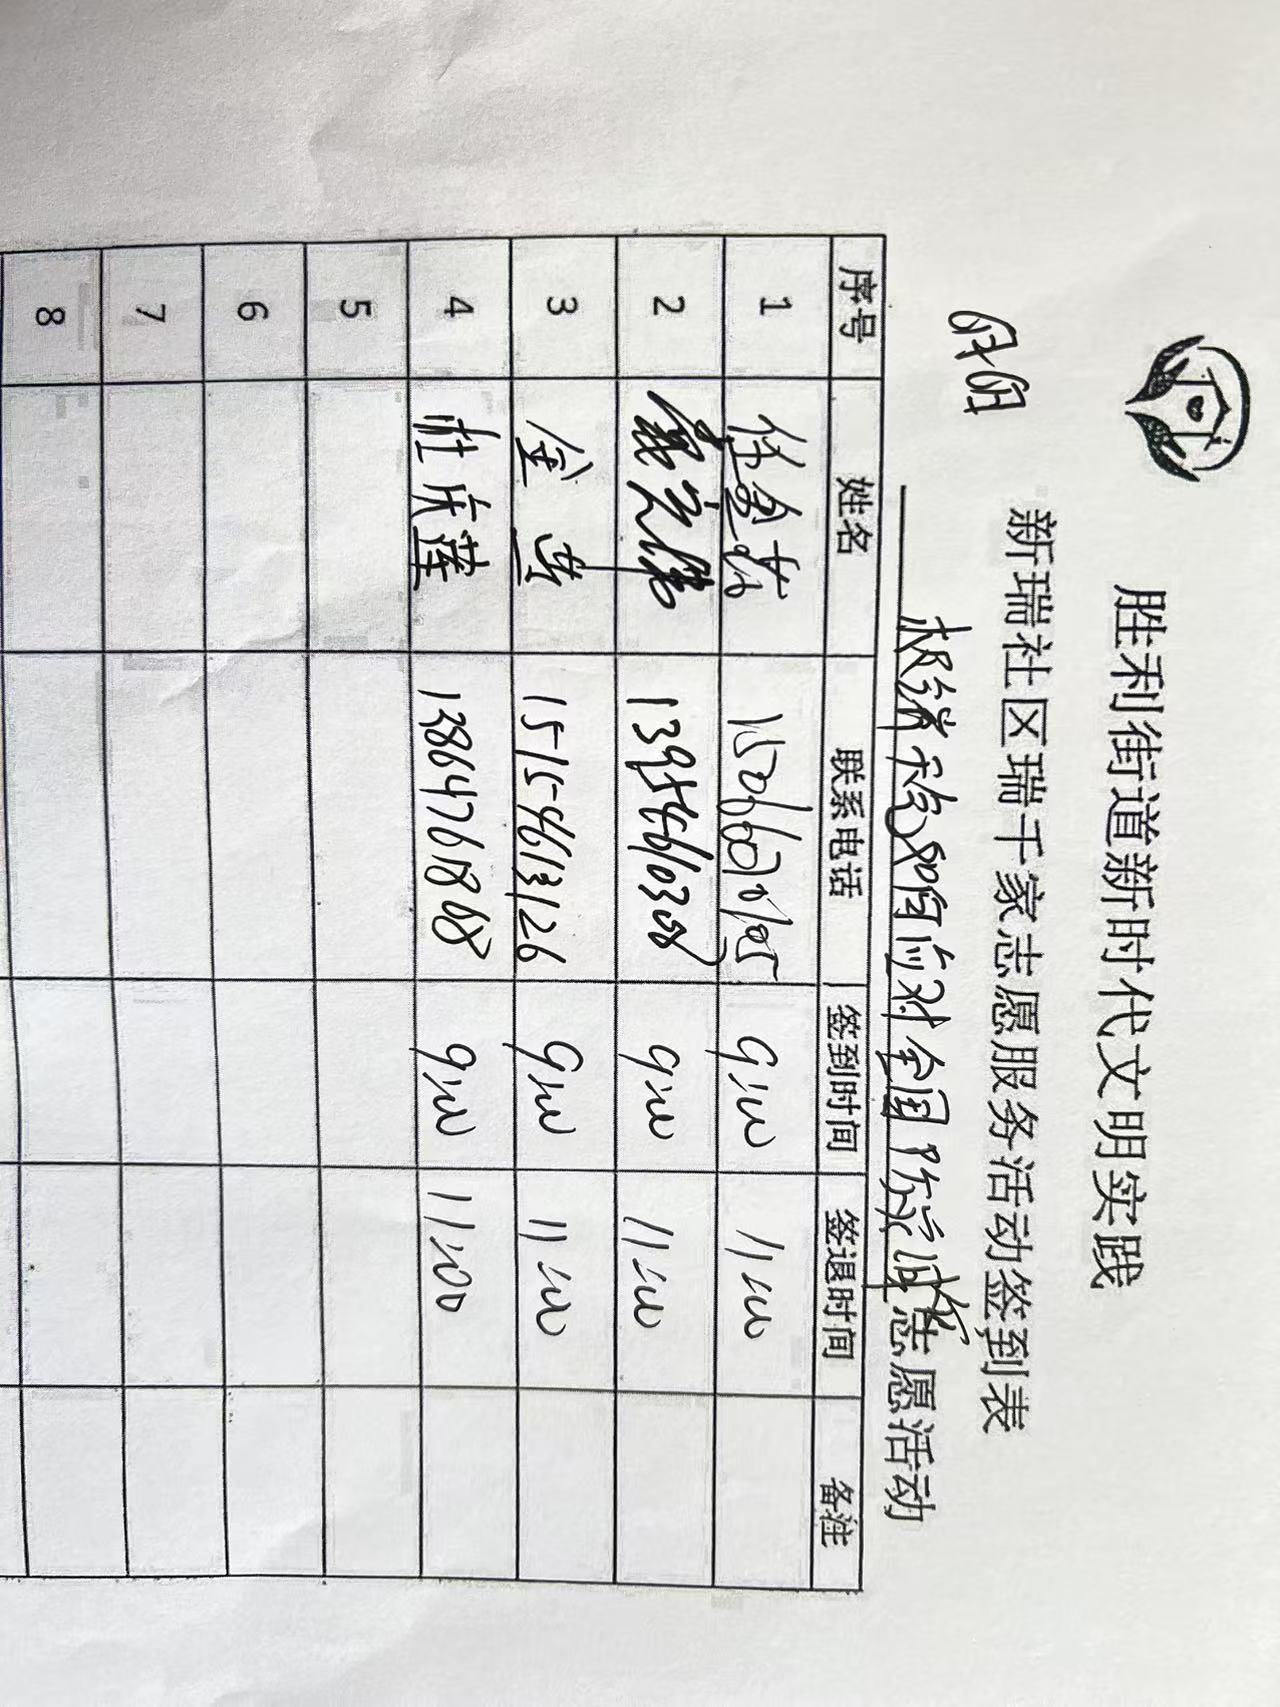 胜利街道新时代文明实践
新瑞社区瑞千家志愿服务活动签到表
极端天气如何应对全国防灾减灾志愿活动
序号 姓名 联系电话 签到时间 签退时间 备注
1 9:00 11:00
2 9:00 11:00
3 金 15154613126 9:00 11:00
4 杜庆莲 13864768 9:00 11:00
5
6
7
8